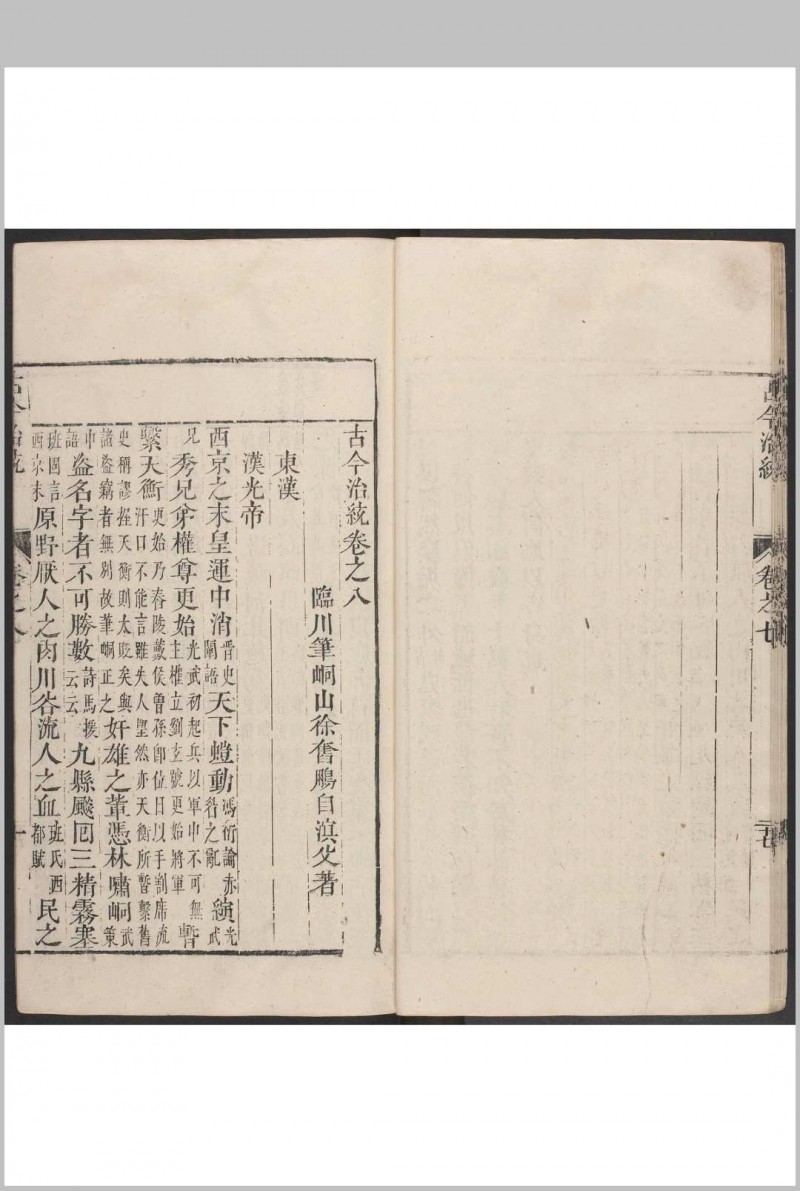 古今治統
卷之七
古今治統卷之八
臨川筆峒山徐奮鵬自溟父著
東漢
漢光帝
西京之末皇運中消晉史闡語天下螘動馮衍論赤眉之亂縯光武
兄秀兄弟權尊更始光武初起兵以軍中不可無主權立劉玄號更始將軍暫
繫天衡更始乃舂陵戴侯曾孫卽位日以手刮席流汗口不能言雖失人望然亦天衡所暫繫舊
史稱謬握天衡則太貶矣與諸盜竊者無別故筆峒正之奸雄之輩憑林嘯峒武策
中語盜名字者不可勝數詩馬援云云九縣颷囘三精霧塞
班固言西京末原野厭人之肉川谷流人之血班氏西都賦民之
古今治統
卷之八
一